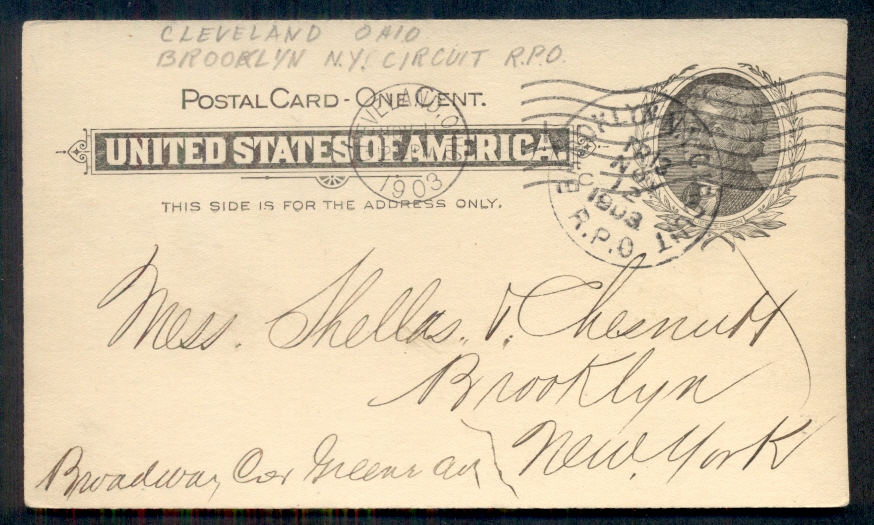 CLEVELAND OHIO
BROOKLYN N.Y. CIRCUIT R.P.O.
POSTAL CARD - ONE CENT.
UNITED STATES OF AMERICA.
THIS SIDE IS FOR THE ADDRESS ONLY.
CLEVELAND, O.
1903
BROOKLYN, N.Y. CIRCUIT
NOV
12
1903
R.P.O.
Mess. Shellas. & Chesnutt
Brooklyn
New. York
Broadway Cor Greene av